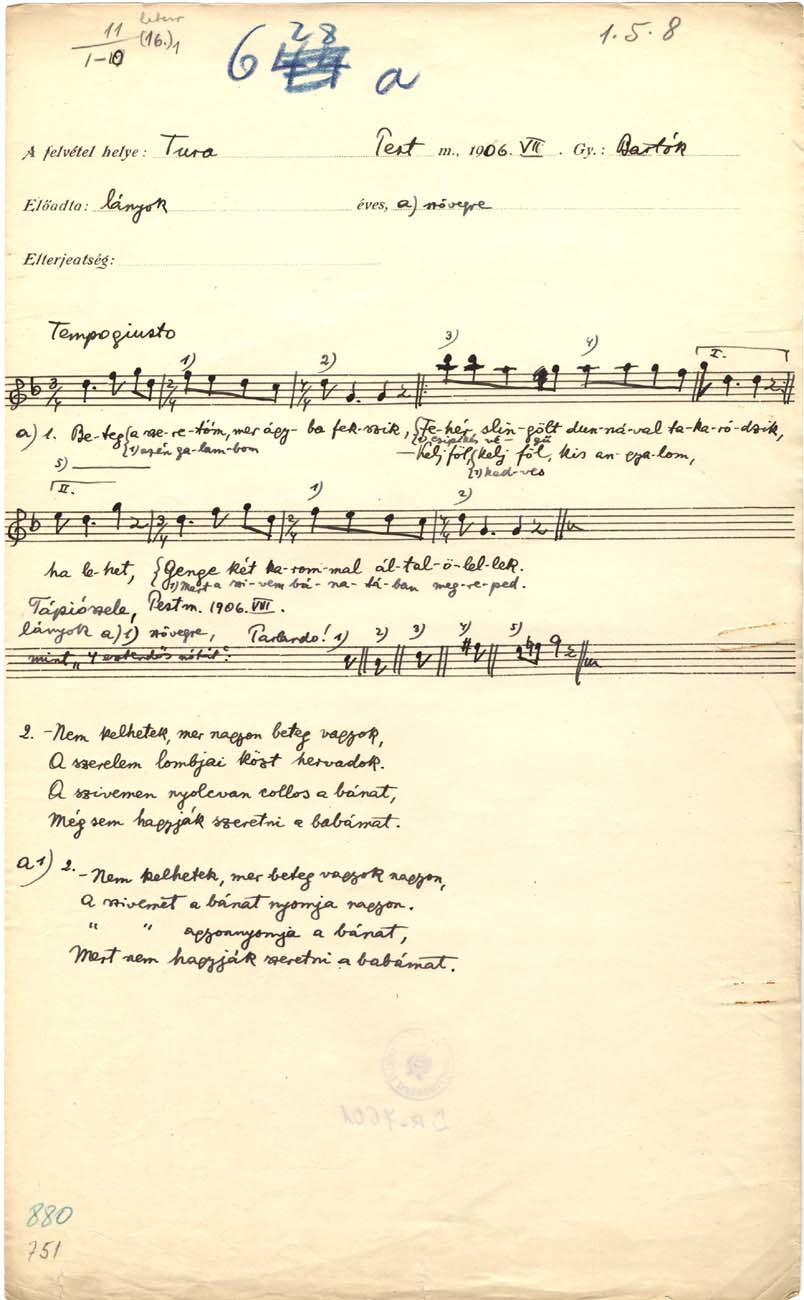 11 1.5.8
1-10 (16.)1
6 28 a
A felvétel helye: Tura Pest m., 1906. VII. Gy.: Bartók
Előadta: lányok éves, a) szövegre
Elterjeatség:
Tempogiusto
1) 2) 3) 4) I.
a) 1. Be-teg a sze-re-tőm, mer ágy-ba fek-szik, Fe-hér slin-gölt dun-ná-val ta-ka-ró-dzik,
1) azén ga-lam-bom
—Kelj föl, kelj föl, kis an-gya-lom,
1) ked-ves
5)
II. 1) 2)
ha le-het, Genge két ka-rom-mal ál-tal-ö-lel-lek.
1) Mert a szi-vem bá-na-tá-ban meg-re-ped.
Tápiószele, Pest m. 1906. VIII.
lányok a) 1) szövegre, Parlando! 1) 2) 3) 4) 5)
mint „4 esztendős nótát":
2. -Nem kelhetek, mer nagyon beteg vagyok,
A szerelem lombjai közt hervadok.
A szivemen nyolcvan collos a bánat,
Még sem hagyják szeretni a babámat.
a 1) 2. -Nem kelhetek, mer beteg vagyok nagyon,
A szivemet a bánat nyomja nagyon.
" " agyonnyomja a bánat,
Mert nem hagyják szeretni a babámat.
880
751